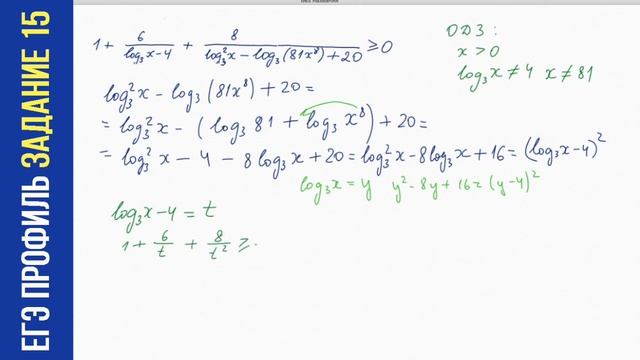 ЕГЭ ПРОФИЛЬ ЗАДАНИЕ 15
1 + 6/(log₃x-4) + 8/(log₃²x - log₃(81x⁸) + 20) ≥ 0
ОДЗ :
x > 0
log₃x ≠ 4 x ≠ 81
log₃²x - log₃(81x⁸) + 20 =
= log₃²x - (log₃81 + log₃x⁸) + 20 =
= log₃²x - 4 - 8log₃x + 20 = log₃²x - 8log₃x + 16 = (log₃x-4)²
log₃x = y y² - 8y + 16 = (y-4)²
log₃x - 4 = t
1 + 6/t + 8/t² ≥